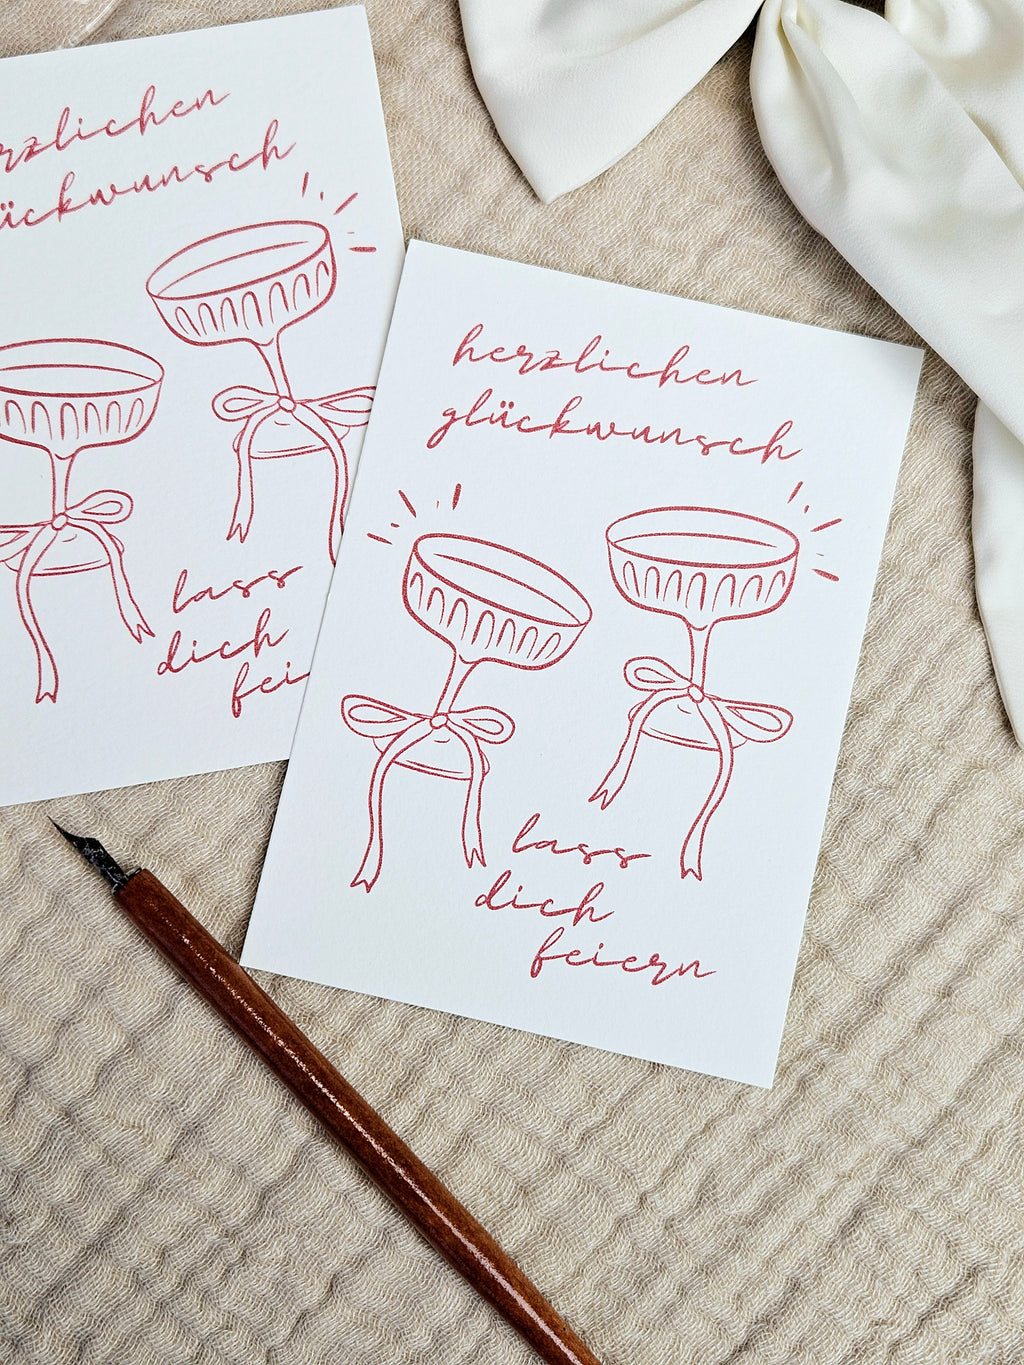 rzlichen
ückwunsch
lass
dich
fei
herzlichen
glückwunsch
lass
dich
feiern